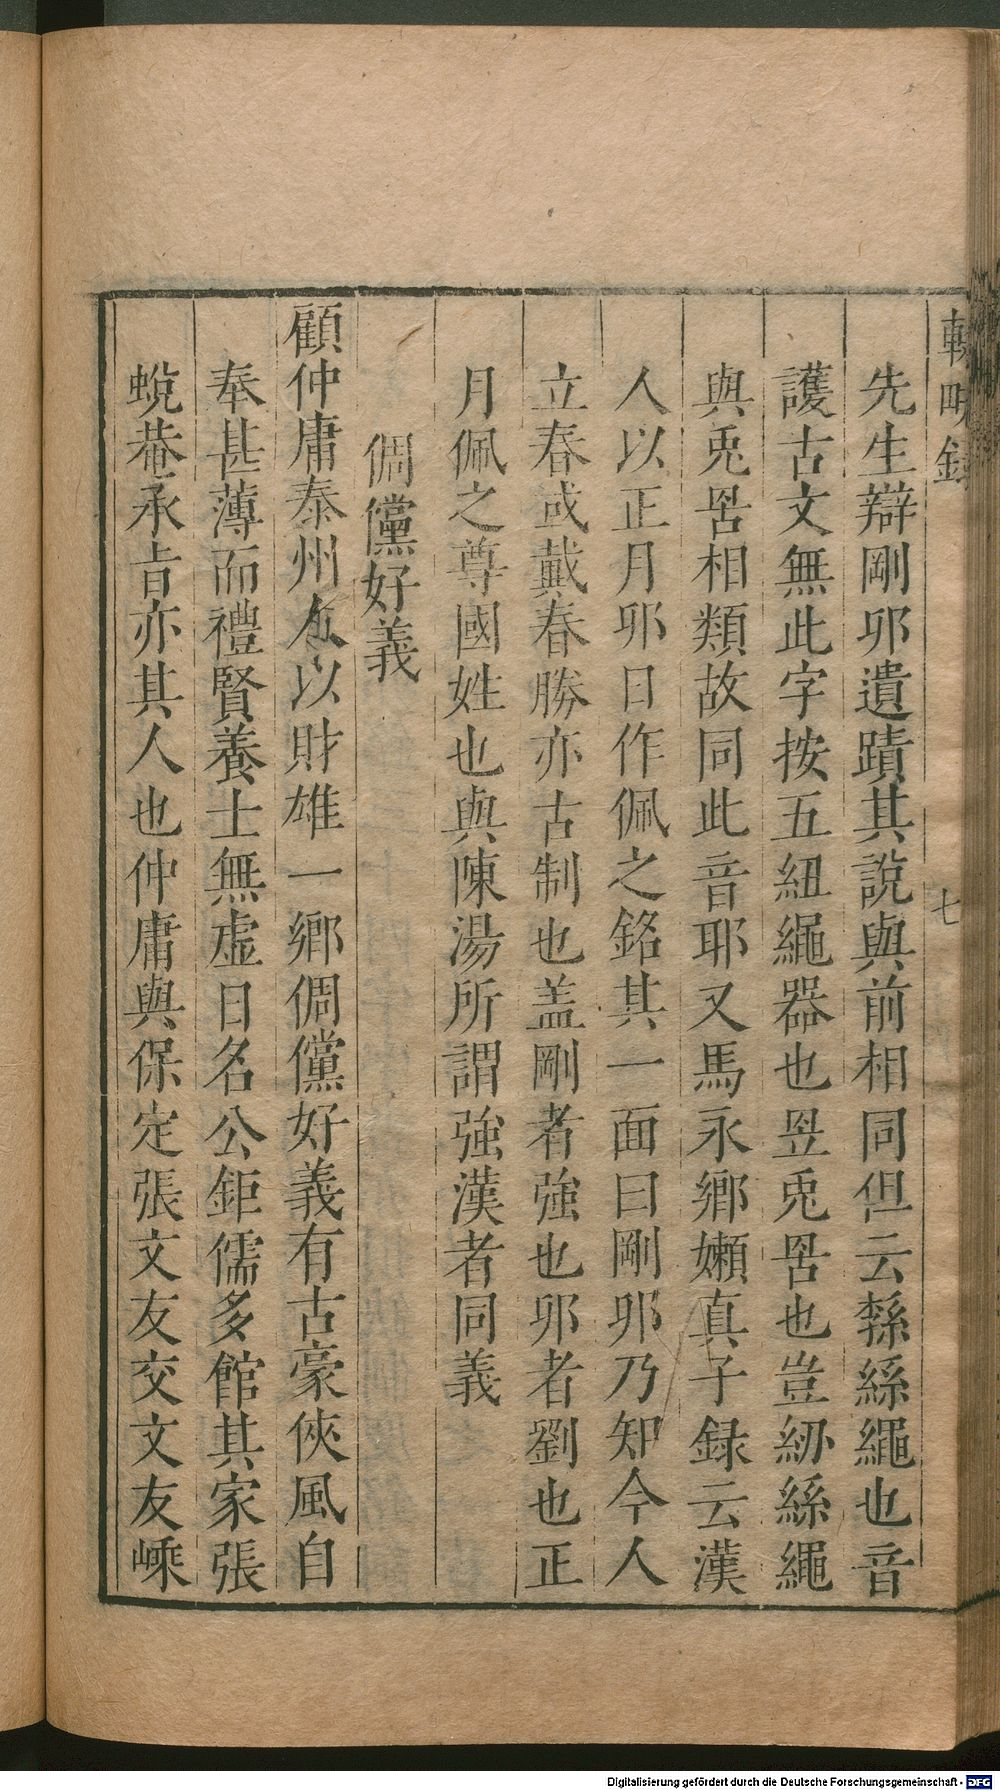 輟畊錄
七
先生辯剛卯遺蹟其說與前相同但云緐絲繩也音
護古文無此字按五紐繩器也㠭兎罟也豈紛絲繩
與兎罟相類故同此音耶又馬永鄉嬾真子録云漢
人以正月卯日作佩之銘其一面曰剛卯乃知今人
立春或戴春勝亦古制也盖剛者強也卯者劉也正
月佩之尊國姓也與陳湯所謂強漢者同義
倜儻好義
顧仲庸泰州人以財雄一鄉倜儻好義有古豪俠風自
奉甚薄而禮賢養士無虛日名公鉅儒多館其家張
蛻菴承旨亦其人也仲庸與保定張文友交文友嵊
Digitalisierung gefördert durch die Deutsche Forschungsgemeinschaft - DFG